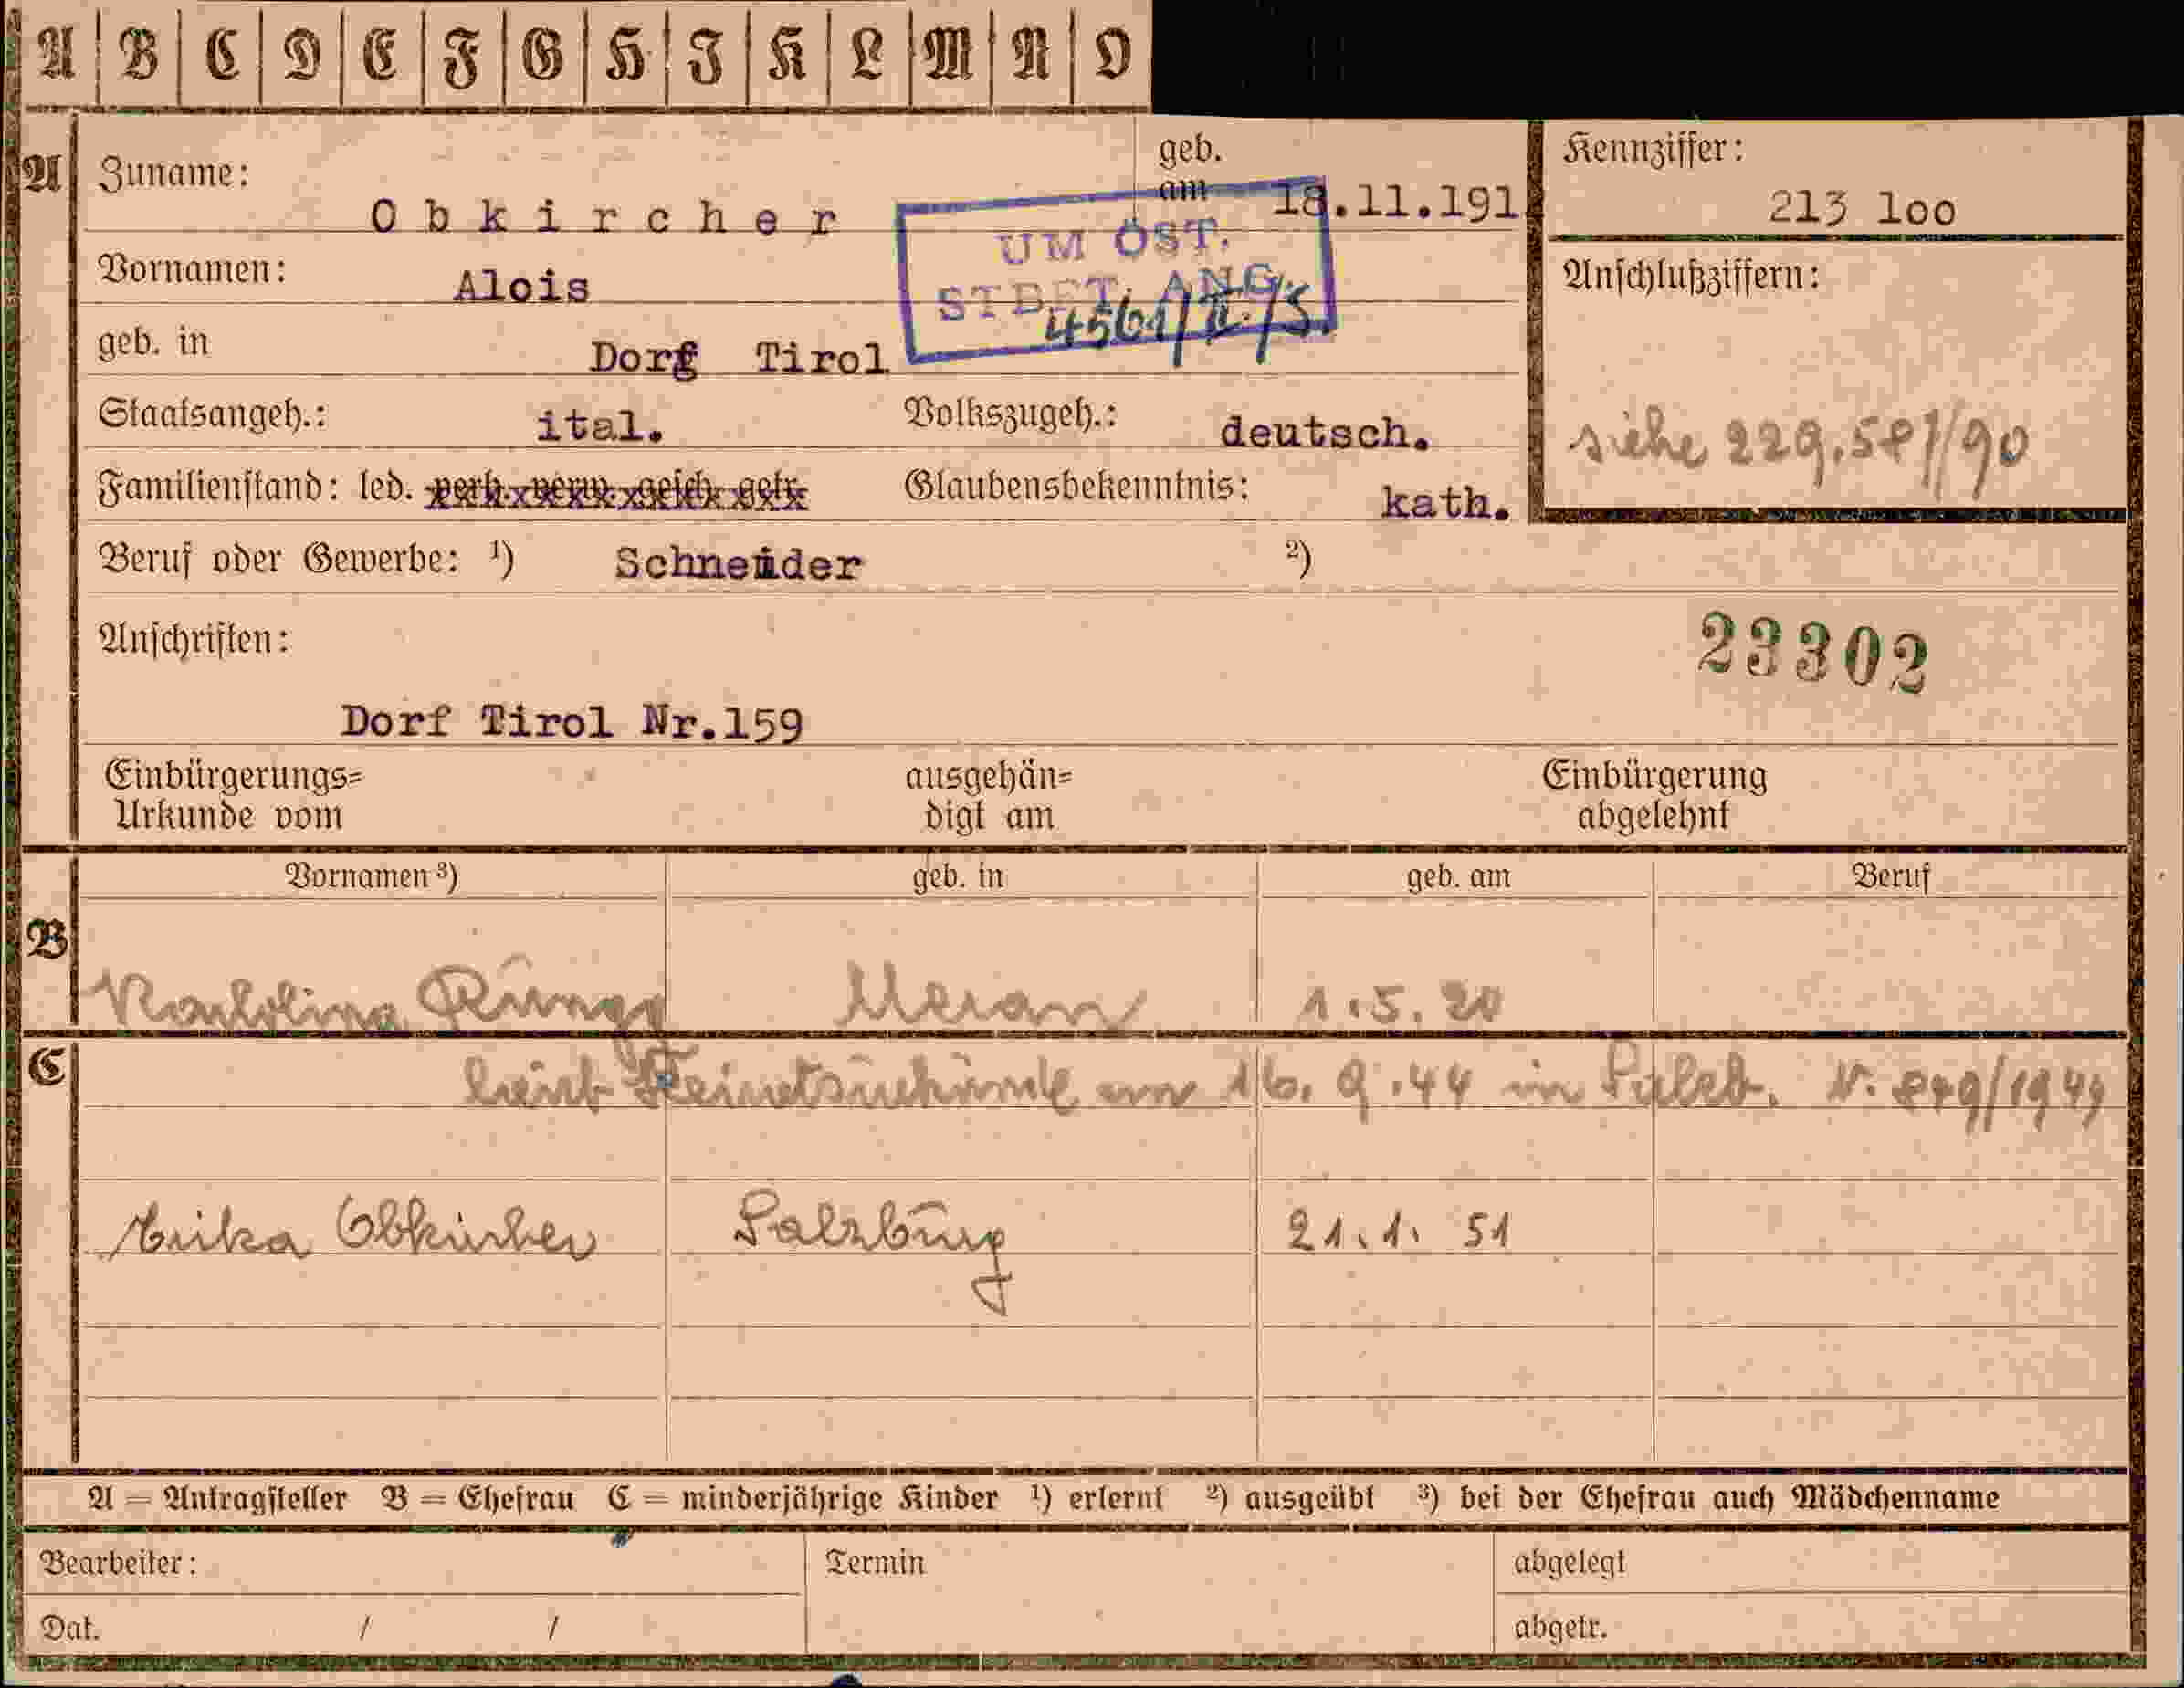 A B C D E F G H I K L M N O
A Zuname: Obkircher geb. am 18.11.191
Kennziffer: 213 loo
Vornamen: Alois
UM ÖST. STBFT. ANG.
4561/II./S.
Anschlußziffern:
siehe 229.587/90
geb. in Dorf Tirol
Staatsangeh.: ital. Volkszugeh.: deutsch.
Familienstand: led. verh. verw. gesch. getr. Glaubensbekenntnis: kath.
Beruf oder Gewerbe: ¹) Schneider ²)
Anschriften:
23302
Dorf Tirol Nr.159
Einbürgerungs= Urkunde vom ausgehän= digt am Einbürgerung abgelehnt
Vornamen ³) geb. in geb. am Beruf
B Meran 1.5.20
C 16.9.44 in
Erika Obkircher Salzburg 21.1. 51
A = Antragsteller B = Ehefrau C = minderjährige Kinder ¹) erlernt ²) ausgeübt ³) bei der Ehefrau auch Mädchenname
Bearbeiter: Termin abgelegt
Dat. / / abgetr.